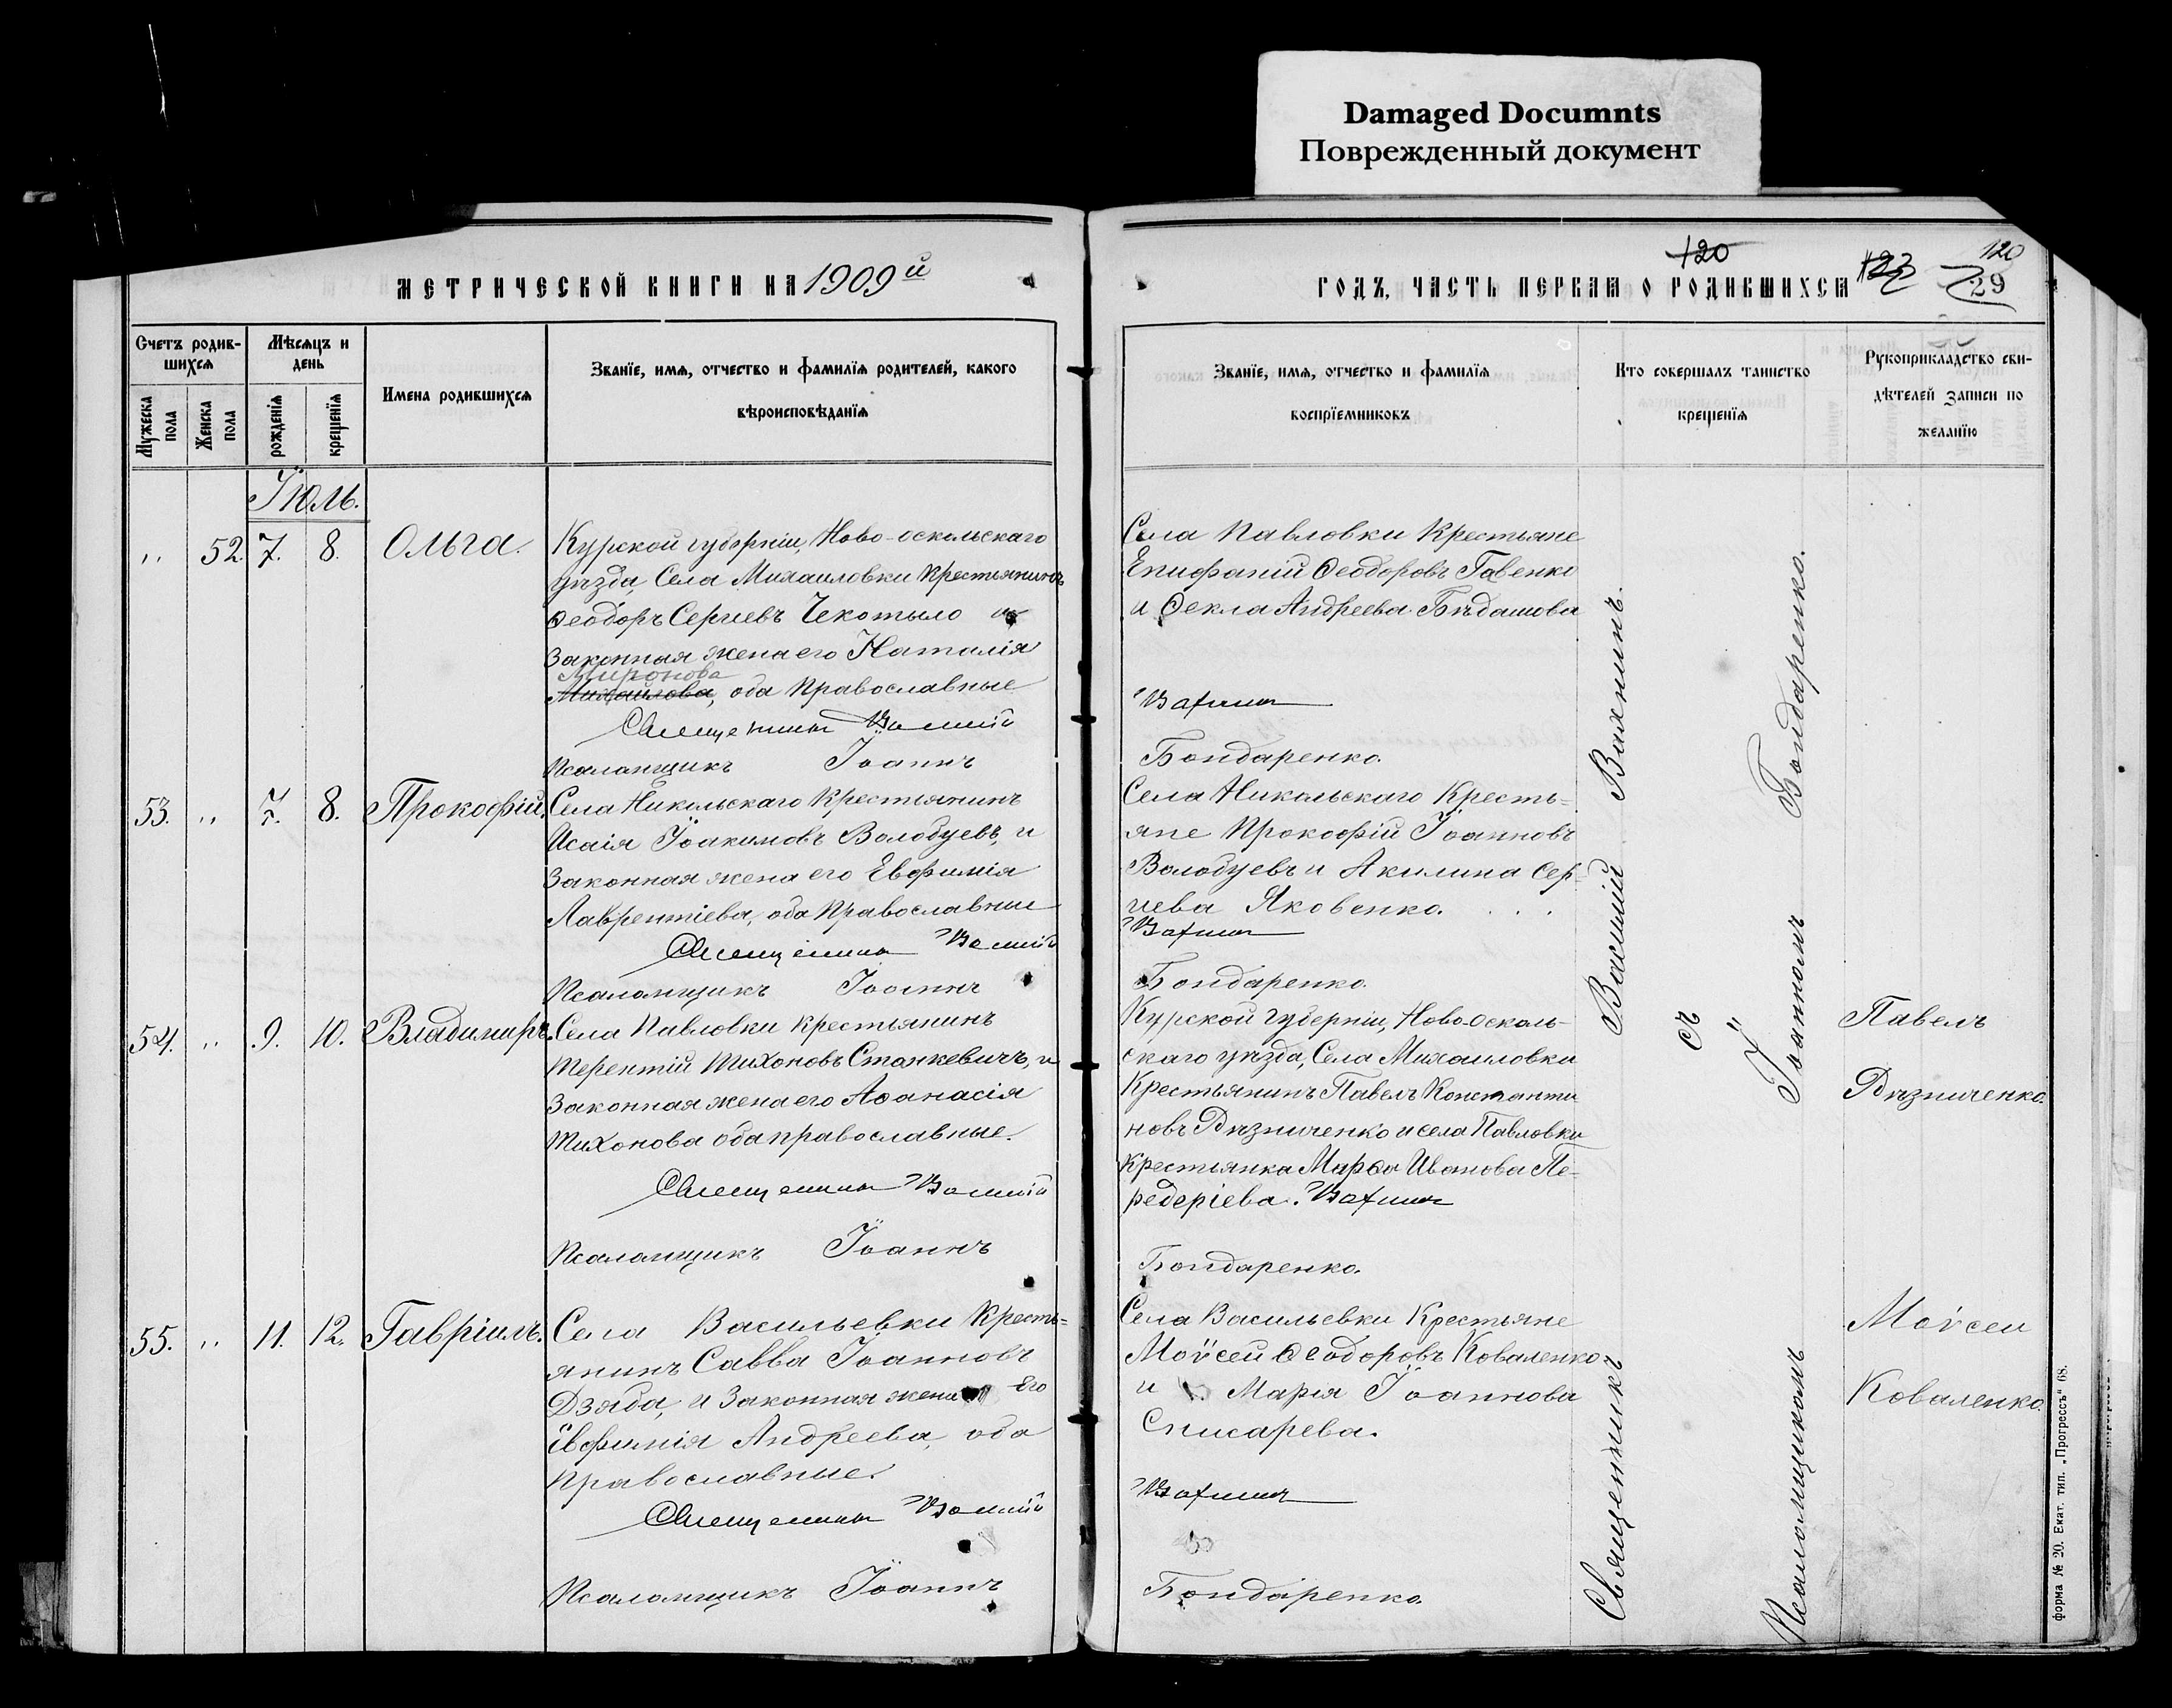 Damaged Documnts
Поврежденный документ
МЕТРИЧЕСКОЙ КНИГИ НА 1909й
ГОДЪ, ЧАСТЬ ПЕРВАЯ О РОДИВШИХСЯ
120
123
120
29
Счетъ родив-
шихся
Мѣсяцъ и
день
Мужеска
пола
Женска
пола
рожденія
крещенія
Имена родившихся
Званіе, имя, отчество и фамилія родителей, какого
вѣроисповѣданія
Званіе, имя, отчество и фамилія
воспріемниковъ
Кто совершалъ таинство
крещенія
Рукоприкладство сви-
дѣтелей записи по
желанію
Іюль.
„ 52. 7. 8. Ольга.
Курской губерніи, Ново-оскольскаго
уѣзда, Села Михаиловки Крестьянинъ
Ѳеодоръ Сергиевъ Чекотыло и
Законная жена его Наталія
Миронова
Михайлова, оба Православные
Священникъ Василій
Псаломщикъ Іоаннъ
Села Павловки Крестьяне
Епифаній Ѳеодоровъ Гавенко
и Ѳекла Андреева Бѣдашова
Вахнинъ
Бондаренко.
53. „ 7. 8. Прокофій.
Села Никольскаго Крестьянинъ
Исаія Іоакимовъ Володуевъ, и
Законная жена его Евфимія
Лаврентіева, оба Православные
Священникъ Василій
Псаломщикъ Іоаннъ
Села Никольскаго Кресть=
яне Прокофій Іоанновъ
Володуевъ и Акилина Сер=
гиева Яковенко.
Вахнинъ
Бондаренко.
54. „ 9. 10. Владимиръ.
Села Павловки крестьянинъ
Терентій Тихоновъ Станкевичъ, и
Законная жена его Аѳанасія
Тихонова оба православные.
Священникъ Василій
Псаломщикъ Іоаннъ
Курской губерніи, Ново-Осколь-
скаго уѣзда, Села Михаиловки
Крестьянинъ Павелъ Константи
новъ Рѣзниченко и села Павловки
крестьянка Марѳа Иванова Пе-
редеріева. Вахнинъ
Бондаренко.
Павелъ
Рѣзниченко.
55. „ 11. 12. Гавріилъ.
Села Васильевки Кресть=
янинъ Савва Іоанновъ
Дзюба, и Законная жена Его
Евфимія Андреева, оба
православные.
Священникъ Василій
Псаломщикъ Іоаннъ
Села Васильевки Крестьяне
Моѵсей Ѳеодоровъ Коваленко
и Марія Іоаннова
Списарева.
Вахнинъ
Бондаренко.
Моѵсеи
Коваленко.
Священникъ Василій Вахнинъ.
съ
Псаломщикомъ Іоанномъ Бондаренко.
форма № 20. Екат. тип. „Прогрессъ“ 68.